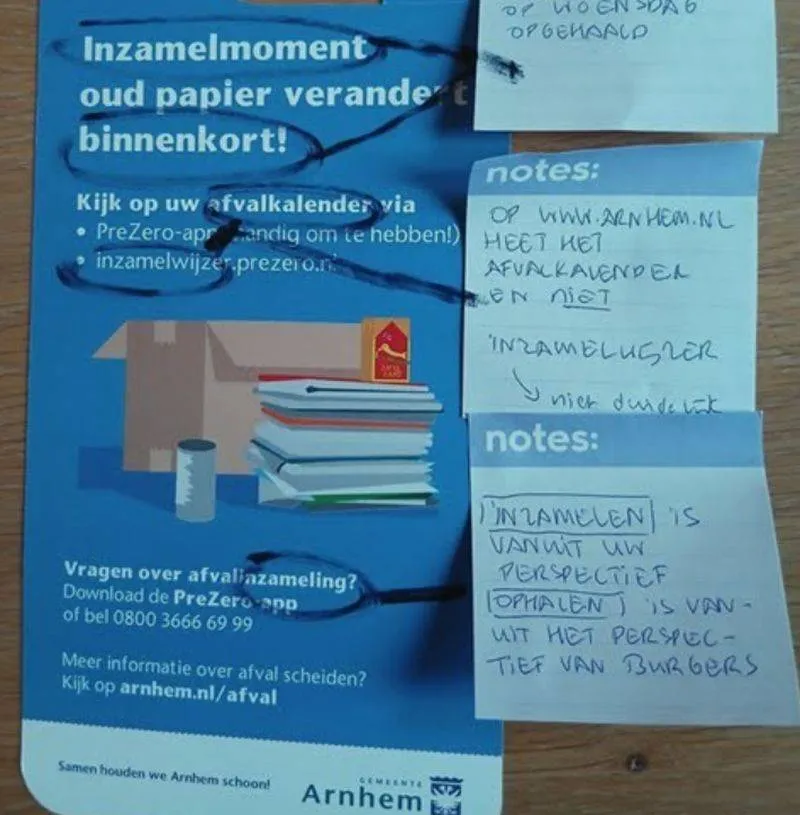 Inzamelmoment
oud papier verandert
binnenkort!
Kijk op uw afvalkalender via
• PreZero-app (handig om te hebben!)
• inzamelwijzer.prezero.nl
Vragen over afvalinzameling?
Download de PreZero-app
of bel 0800 3666 69 99
Meer informatie over afval scheiden?
Kijk op arnhem.nl/afval
Samen houden we Arnhem schoon!
GEMEENTE
Arnhem
OP WOENSDAG
OPGEHAALD
notes:
OP WWW.ARNHEM.NL
HEET HET
AFVALKALENDER
EN NIET
INZAMELWIJZER
niet duidelijk
notes:
'INZAMELEN' IS
VANUIT UW
PERSPECTIEF
OPHALEN IS VAN-
UIT HET PERSPEC-
TIEF VAN BURGERS